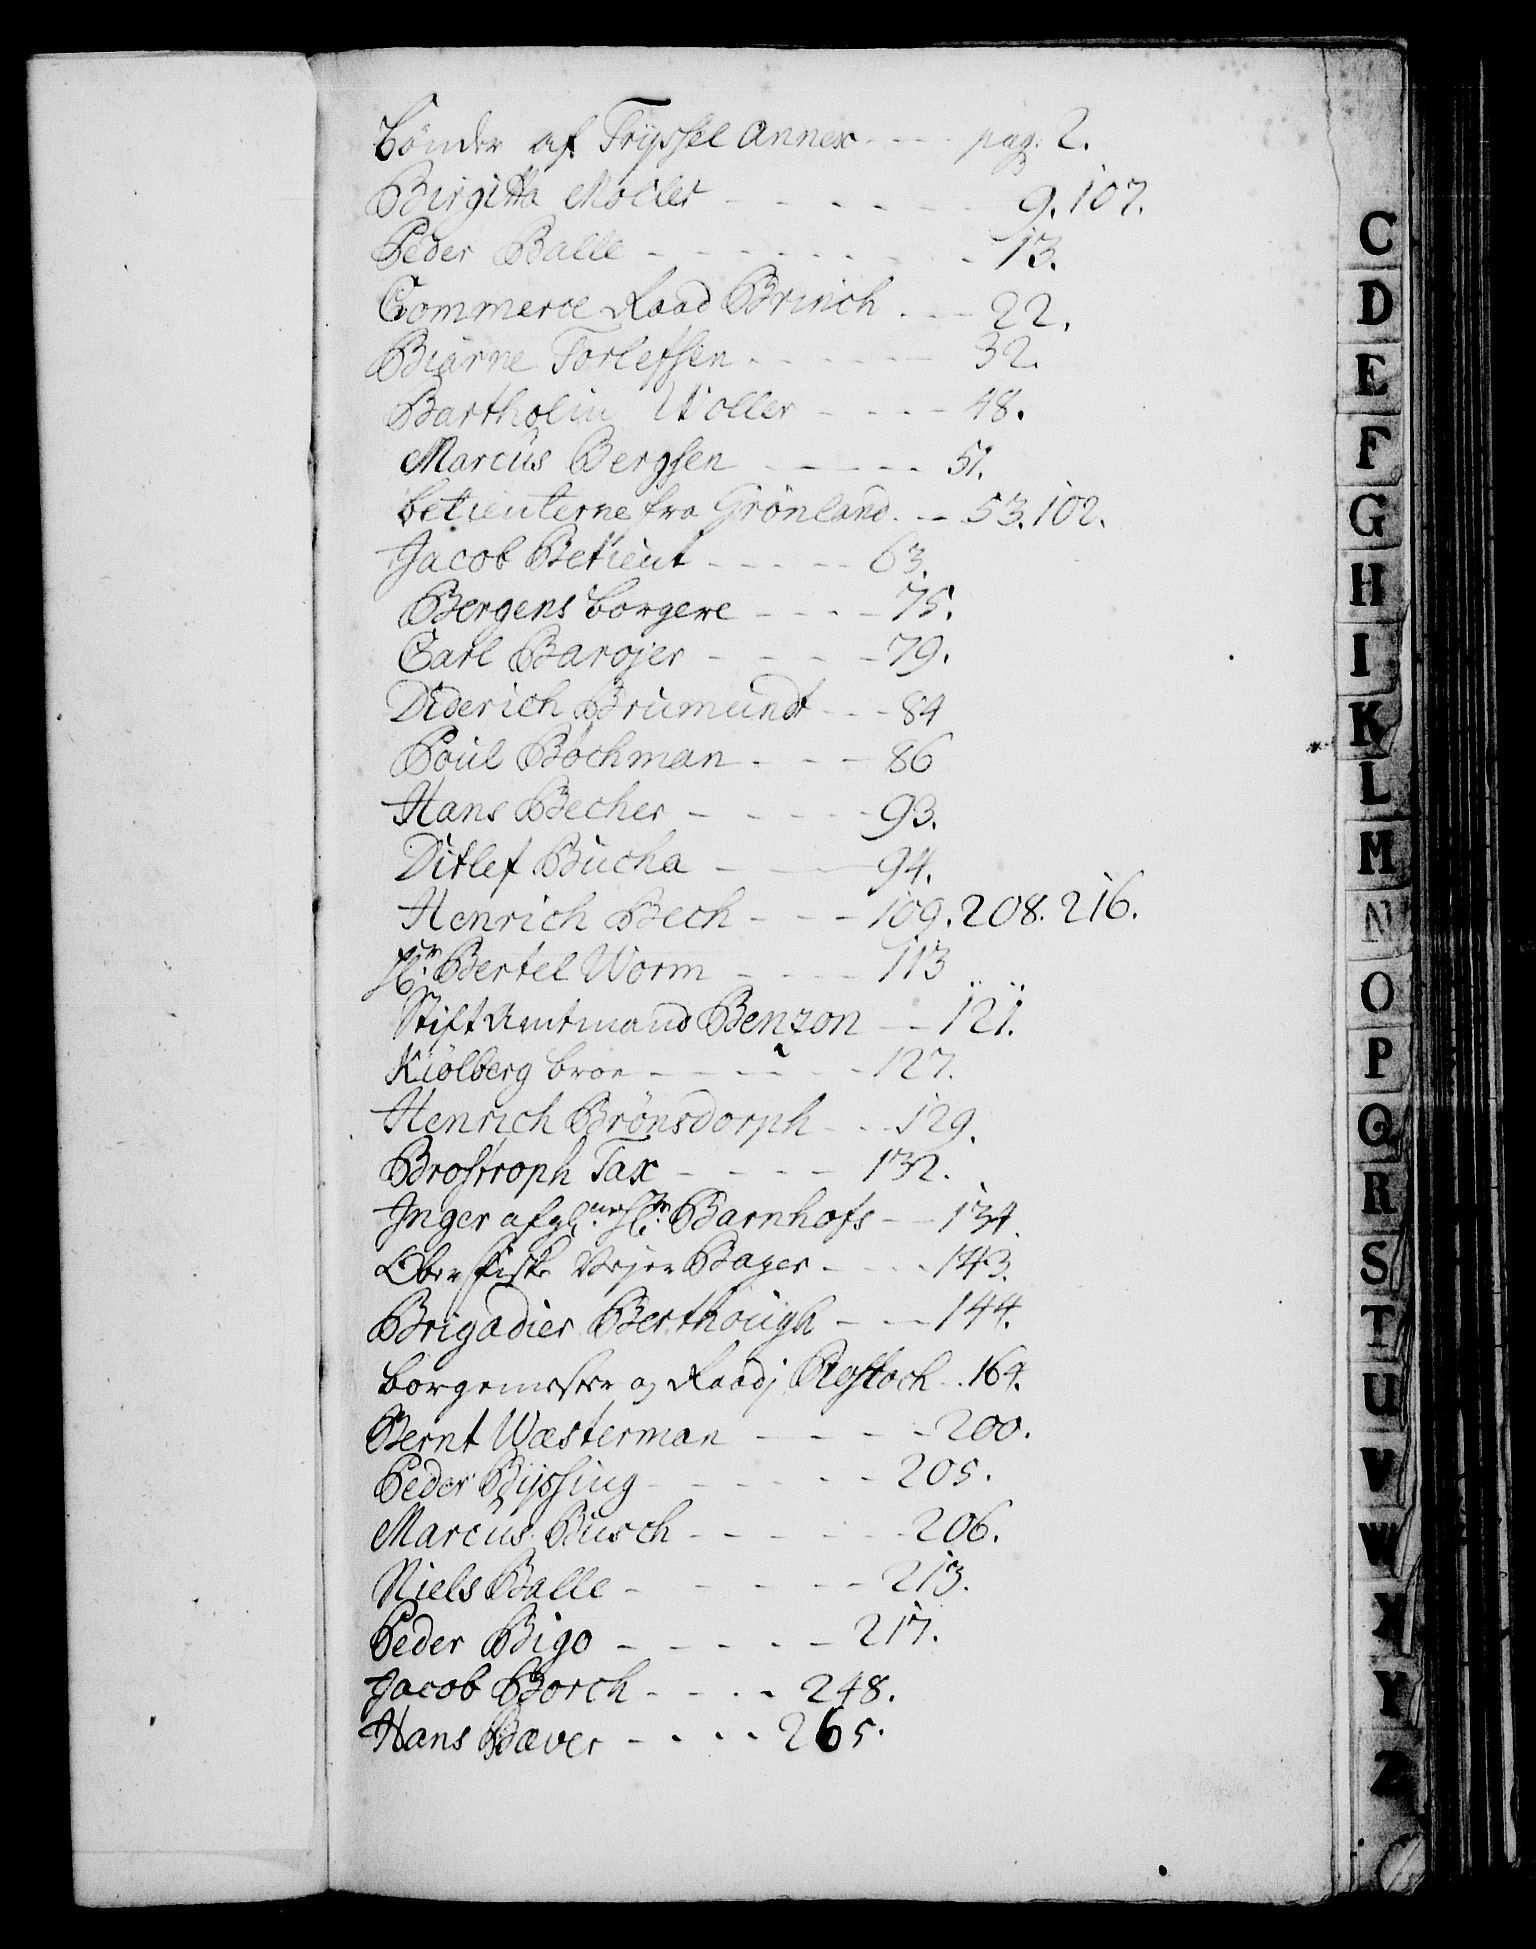 Bönder af Trÿssel Annex - - - pag: 2.
Birgitta Möller - - - - - - 9. 107.
Peder Balle - - - - - - - - 13.
Commerce Raad Brinch . - - 22.
Biarne Torlefsen - - - - - 32.
Bartholin Woller - - - - 48.
Marcus Bergsen - - - - - 51.
betienterne fra Grönland. - - 53. 102.
Jacob Betient - - - - - 63.
Bergens borgere - - - - 75.
Carl Barojer - - - - - 79.
Diderich Brumundt - - - 84
Poul Bochman - - - - 86
Hans Becher - - - - - 93.
Ditlef Bucha - - - - 94.
Henrich Bech - - - - 109. 208. 216.
Hr. Bertel Worm - - - - 113
Stift Amtmand Benzon - - 121.
Kiölberg broe - - - - - - 127.
Henrich Brönsdorph - - - 129.
Brostroph Tax - - - - - 132.
Inger Barnhofs - - - 134.
Ober fiske Vejer Bager - - - - 143.
Brigadier Berthough - - - 144.
borgemester og Raad j Rostoch - . 164.
Bernt Wæsterman - - - - - 200.
Peder Bÿssing - - - - - - 205.
Marcus Busch - - - - - - 206.
Niels Balle - - - - - - 213.
Peder Bigo - - - - - - 217.
Jacob Borch - - - - 248.
Hans Bæver - - - - 265.
C
D
E
F
G
H
I
K
L
M
N
O
P
Q
R
S
T
U
V
W
X
Y
Z